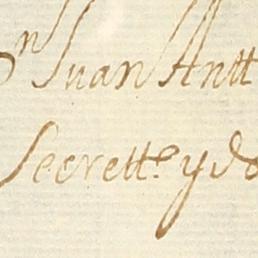 Dn Juan Antt
Secrett.o y de